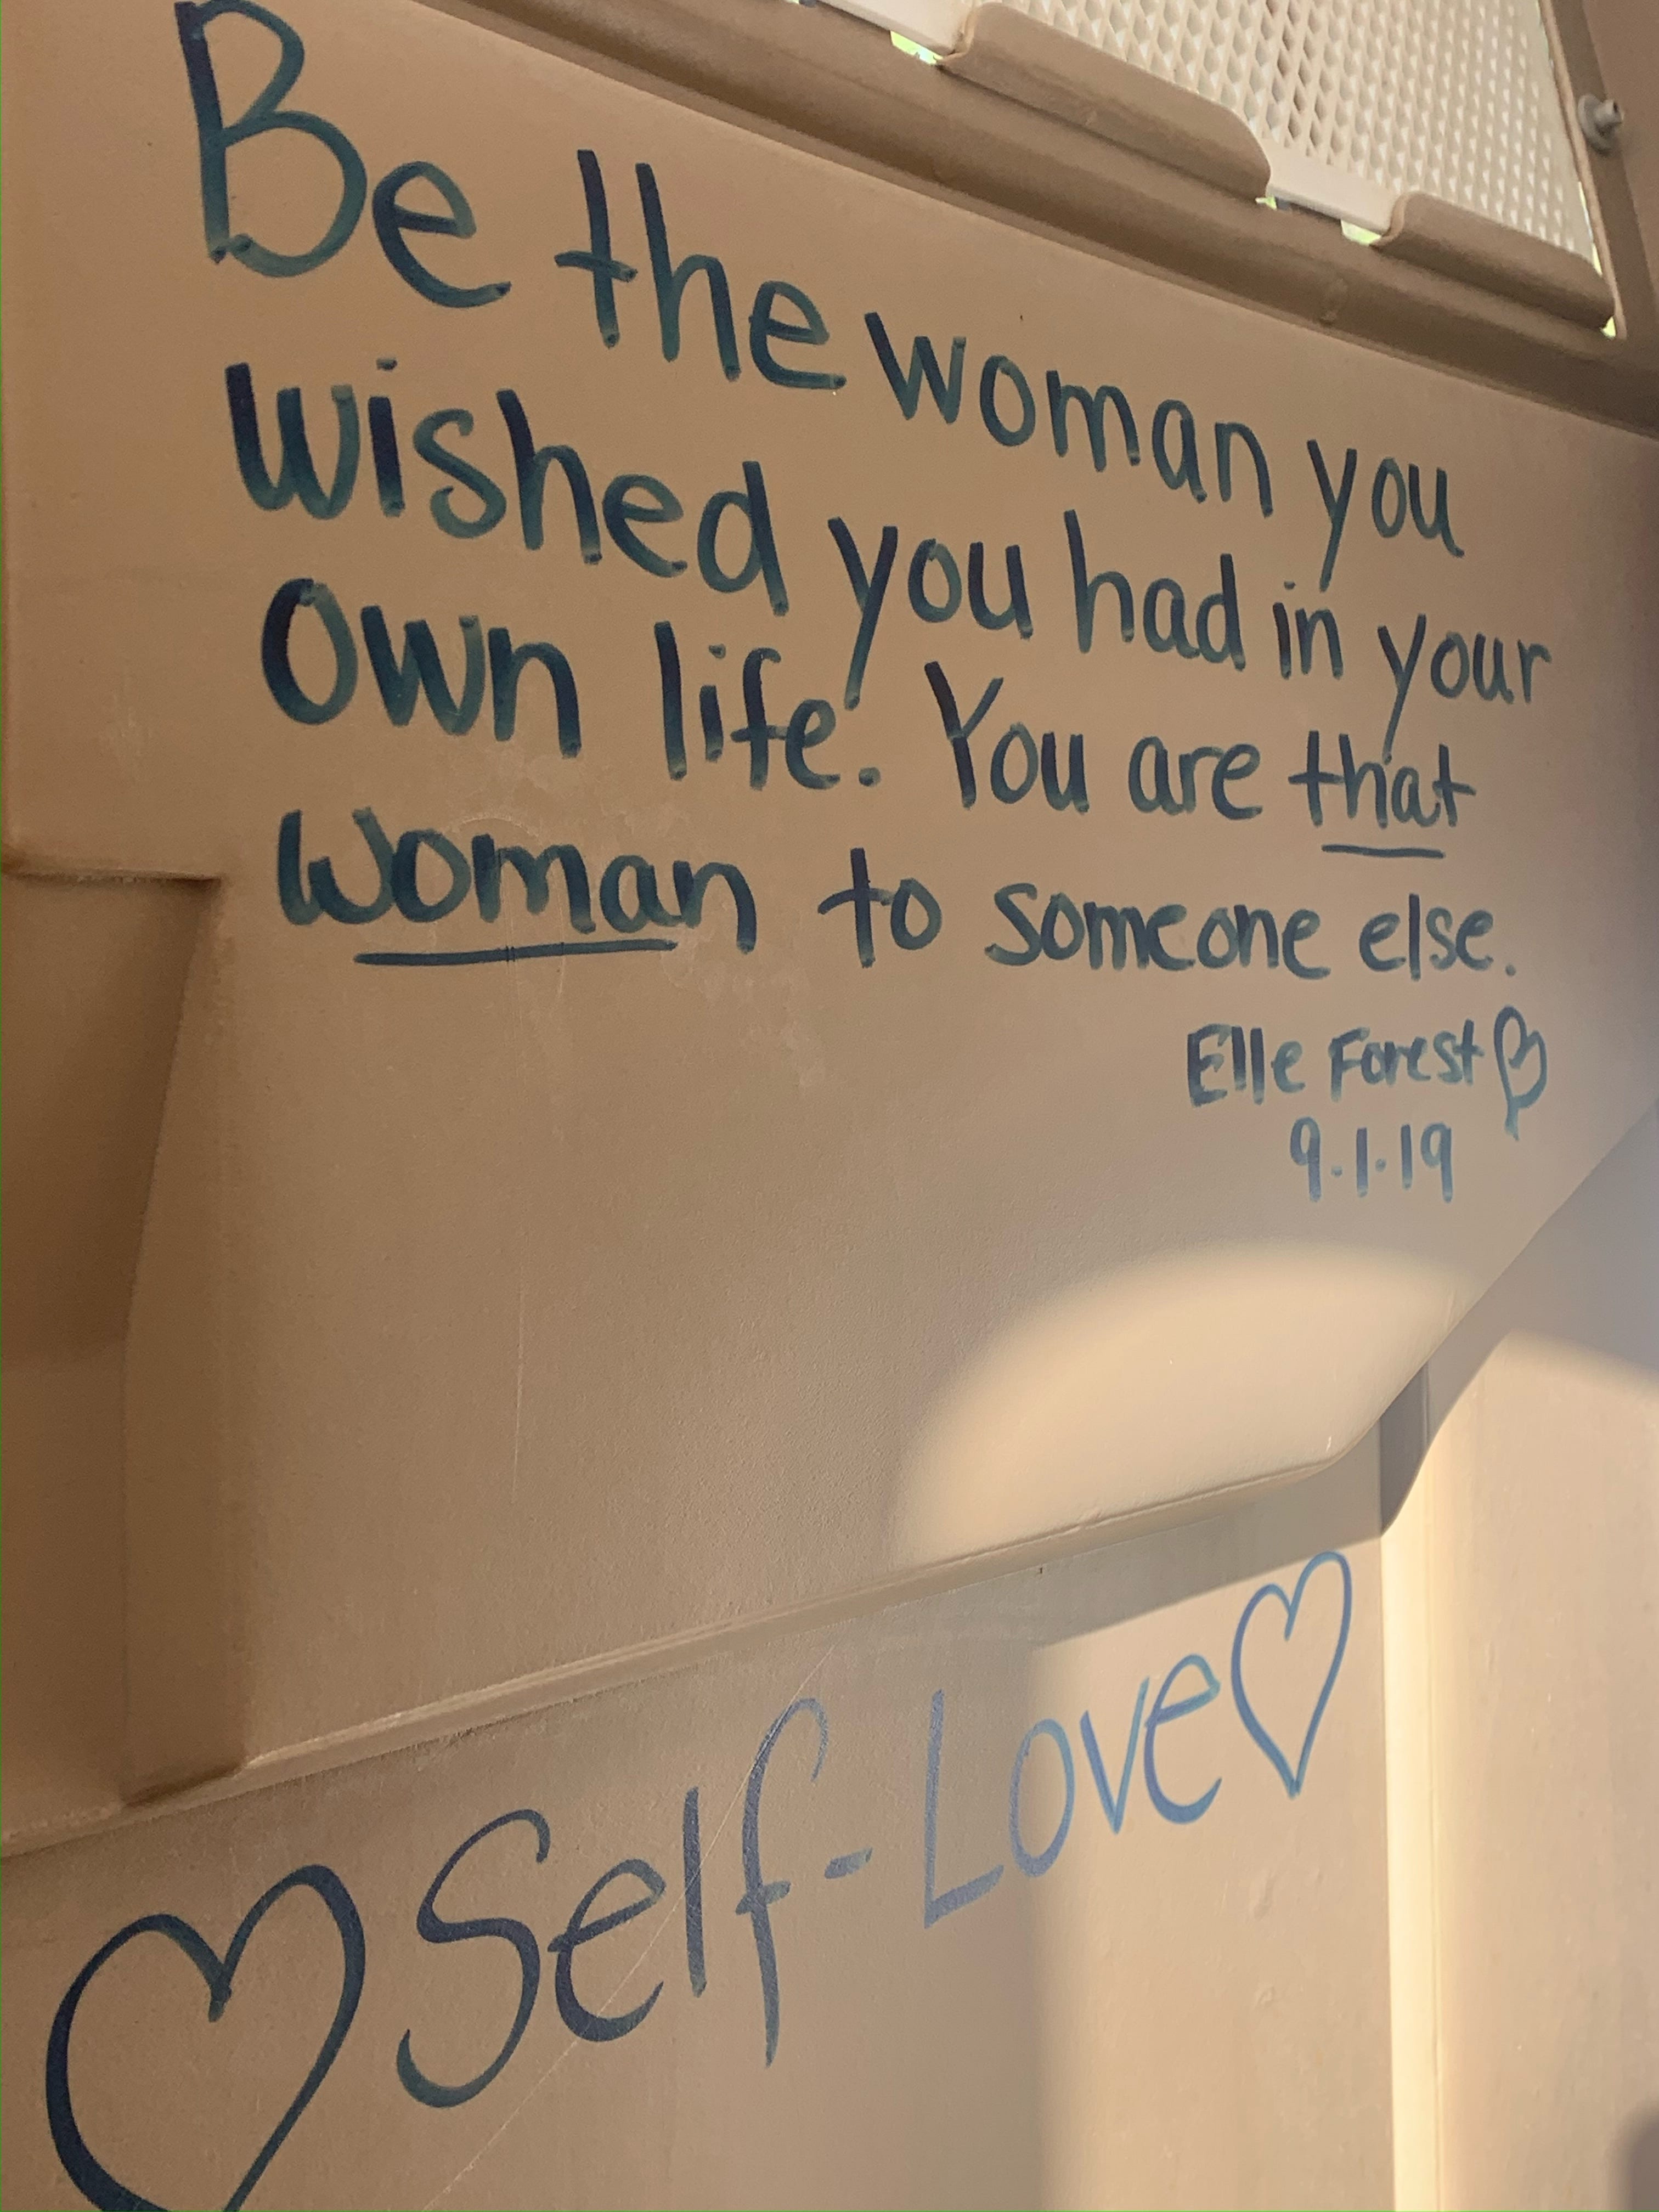 Be the woman you
wished you had in your
own life. You are that
woman to someone else.
Elle Forest
9.1.19
Self-Love